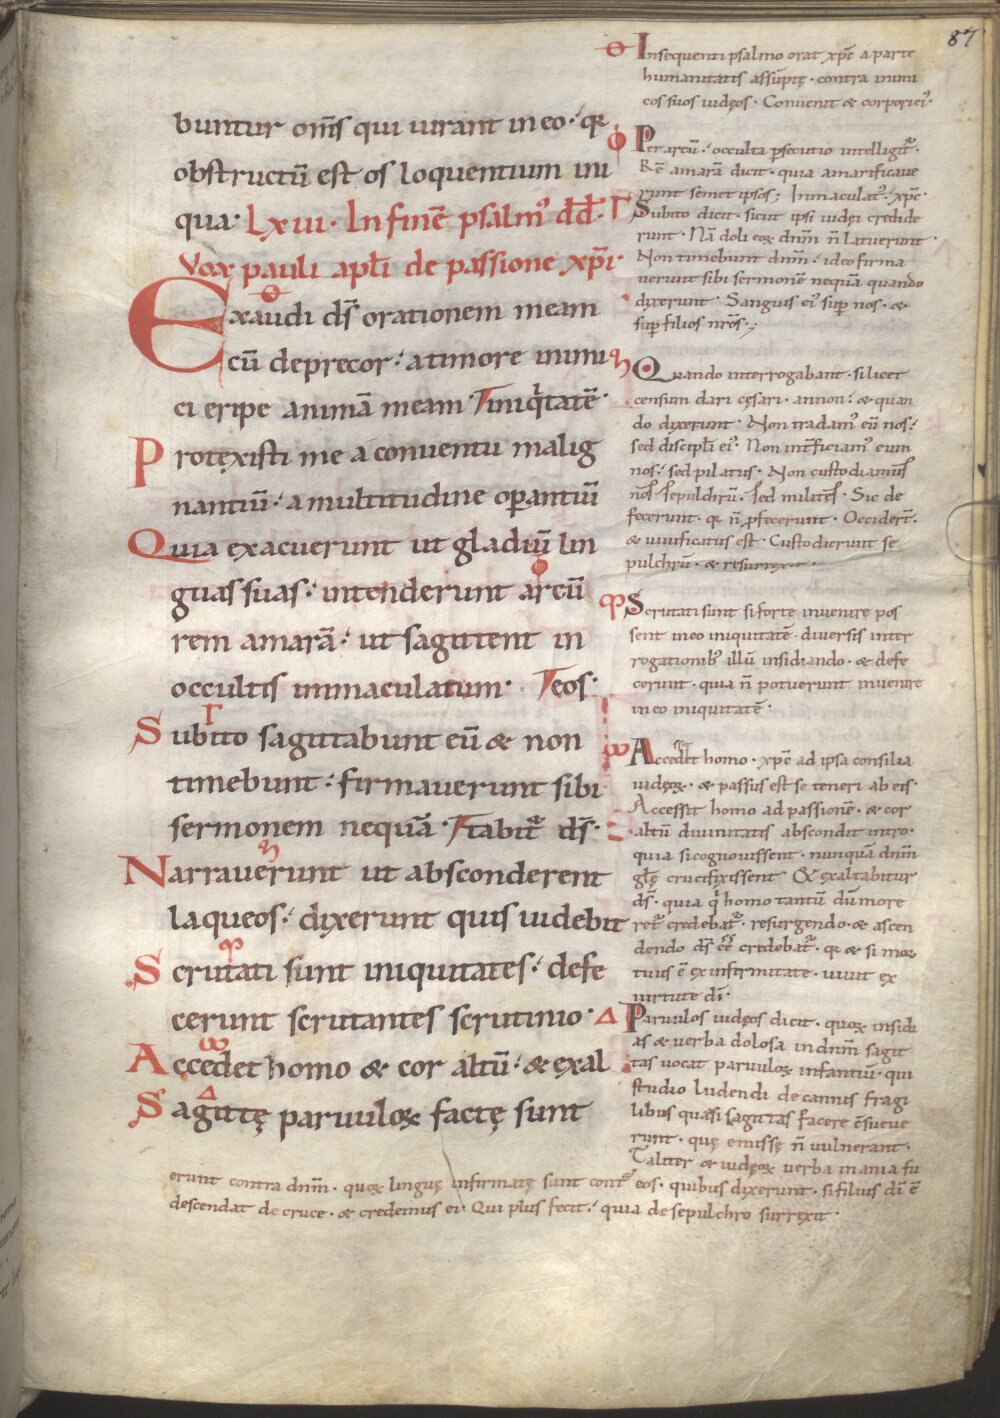 87
buntur om̄s qui iurant in eo· qꝛ
obstructū est os loquentium ini
qua· Lxiii· In finē psalm' dd̄·
Vox pauli apl̄i de passione xp̄i·
Exaudi ds̄ orationem meam
cū deprecor· a timore inimi
ci eripe animā meam· iniq̄tatē·
Protexisti me a conventu malig
nantiū· a multitudine oꝑantiū
Quia exacuerunt ut gladiū lin
guas suas· intenderunt arcū
rem amarā· ut sagittent in
occultis immaculatum· eos·
Subito sagittabunt eū & non
timebunt· firmaverunt sibi
sermonem nequā· tabit̄ ds̄·
Narraverunt ut absconderent
laqueos· dixerunt quis videbit
Scrutati sunt iniquitates· defe
cerunt scrutantes scrutinio·
Accedet homo & cor altū· & exal
Sagittę parvuloꝝ factę sunt
Insequenti psalmo orat xp̄c a parte
humanitatis assūptę· contra inimi
cos suos iudęos· Convenit & corpori ei'·
Per artū· occulta ꝑsecutio intelligit̄·
Rē amarā dicit· quia amarificave
runt semet ipsos; Immaculat'· xp̄c·
Subito dicit· sicut ipsi iudęi credide
runt· Nā doli eoꝝ dnm̄ n̄ latuerunt·
Non timebunt dnm̄· ideo firma
verunt sibi sermonē nequā quando
dixerunt· Sanguis ei' sup̄ nos· &
sup̄ filios nrōs·;
Quando interrogabant· si licet
censum dari cęsari· annon· & quan
do dixerunt· Non tradam' eū nos·
sed discipl̄i ei'· Non int̄ficiam' eum
nos· sed pilatus· Non custodiamus
nos sepulchrū· sed milites· Sic de
fecerunt· qꝛ n̄ ꝑfecerunt· Occider̄t·
& vivificatus est· Custodierunt se
pulchrū· & resurrexit·
Scrutati sunt si forte invenire pos
sent in eo iniquitatē· diversis inter
rogationib' illū insidiando· & defe
cerunt· quia n̄ potuerunt invenire
in eo iniquitatē·
Accedet homo· xp̄c ad ipsa consilia
iudęoꝝ· & passus est se teneri ab eis·
Accessit homo ad passionē· & cor
altū divinitatis abscondit intro·
quia si cognovissent· nunquā dnm̄
glę̄ crucifixissent· Et exaltabitur
ds̄· quia q̄ homo tantū dū more
ret̄ credebat̄· resurgendo· & ascen
dendo ds̄ ēē credebat̄· qꝛ & si mor
tuus ē ex infirmitate· vivit ex
virtute dī·
Parvulos iudęos dicit· quoꝝ insidi
as & verba dolosa in dnm̄ sagit
tas vocat parvuloꝝ infantiū· qui
studio ludendi de cannis fragi
libus quasi sagittas facere c̄sueve
runt· quę emissę n̄ vulnerant·
Taliter & iudęoꝝ verba inania fu
erunt contra dnm̄· quoꝝ linguę infirmatę sunt cont̄ eos· quibus dixerunt· si filius dī ē
descendat de cruce· & credemus ei· Qui plus fecit· quia de sepulchro surrexit·